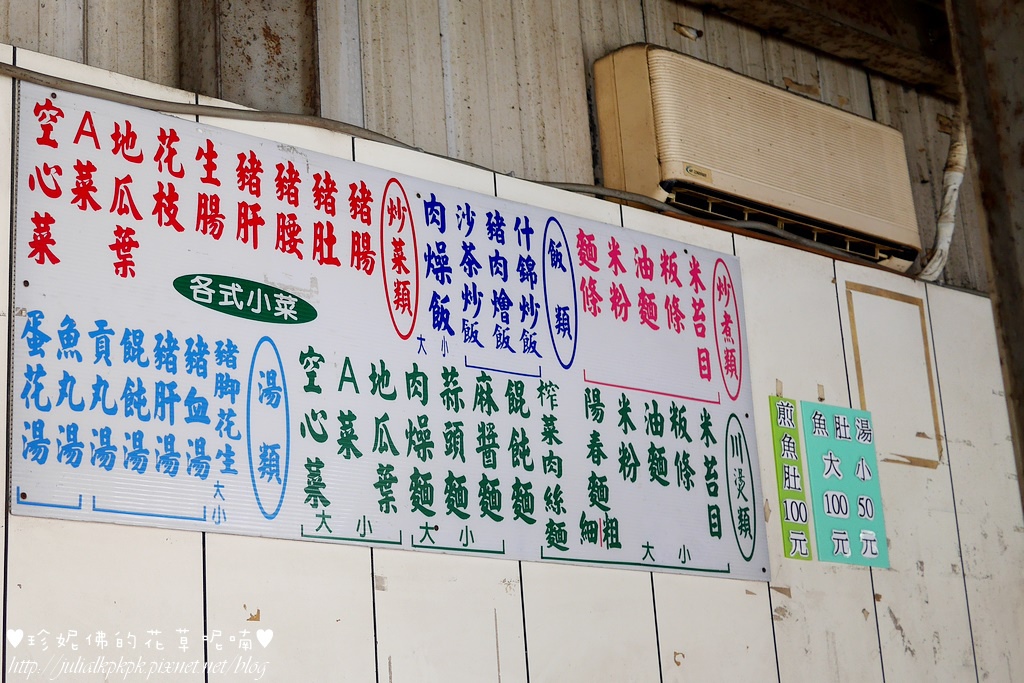 炒煮類
米苔目
粄條
油麵
米粉
麵條
飯類
什錦炒飯
豬肉燴飯
沙茶炒飯
肉燥飯
大 小
炒菜類
豬腸
豬肚
豬腰
豬肝
生腸
花枝
地瓜葉
A菜
空心菜
各式小菜
川燙類
米苔目
粄條
油麵
米粉
陽春麵
粗
細
大 小
榨菜肉絲麵
餛飩麵
麻醬麵
蒜頭麵
肉燥麵
大 小
地瓜葉
A菜
空心菜
大 小
湯類
豬腳花生
大 小
豬血湯
豬肝湯
餛飩湯
貢丸湯
魚丸湯
蛋花湯
煎魚肚100元
魚肚湯
大100元
小50元
♥珍妮佛的花草呢喃♥
http://julialkpkpk.pixnet.net/blog